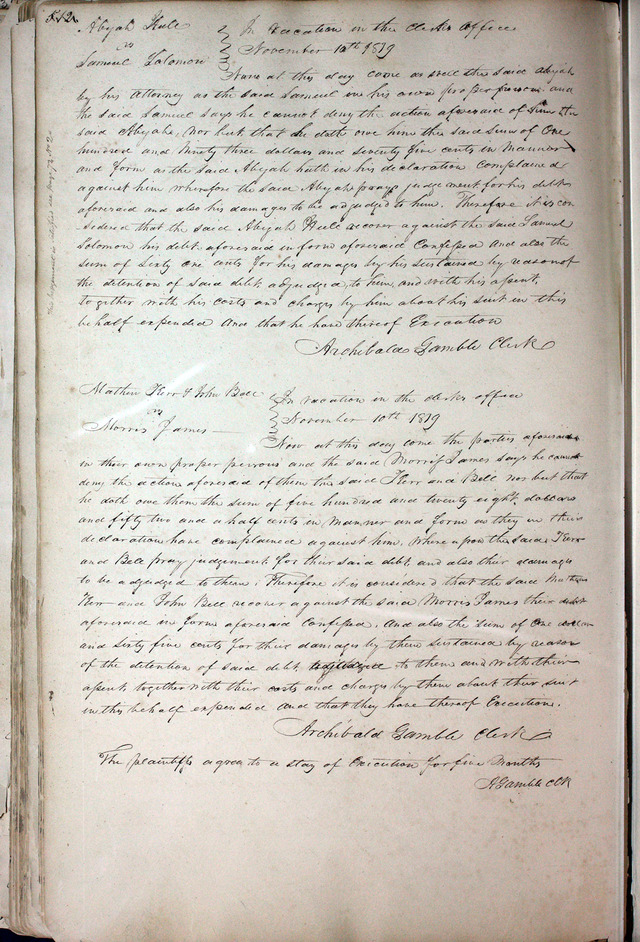 512
Abijah Hull
vs
Samuel Solomon
In vacation in the clerks office
November 10th 1819
Now at this day came as well the said Abijah
by his Attorney as the said Samuel in his own proper person and
the said Samuel says he cannot deny the action aforesaid of him the
said Abijah, nor but that he doth owe him the said sum of One
hundred and Ninety three dollars and seventy five cents in Manner
and form as the said Abijah hath in his declaration Complained
against him wherefore the said Abijah prays judgement for his debt
aforesaid and also his damages to be adjudged to him. Therefore it is con
sidered that the said Abijah Hull recover against the said Samuel
Solomon his debt aforesaid in form aforesaid Confessed And also the
sum of Sixty one cents for his damages by his sustained by reason of
the detention of said debt adjudged to him, and with his assent,
together with his costs and charges by him about his suit in this
behalf expended And that he have thereof Execution
Archibald Gamble Clerk
Mathew Kerr & John Bell
vs
Morris James
In vacation in the clerks office
November 10th 1819
Now at this day come the parties aforesaid
in their own proper persons and the said Morris James says he cannot
deny the action aforesaid of them the said Kerr and Bell nor but that
he doth owe them the sum of five hundred and twenty eight dollars
and fifty two and a half cents in Manner and form as they in their
declaration have complained against him. Whereupon the said Kerr
and Bell pray judgement for their said debt and also their damages
to be adjudged to them; Therefore it is considered that the said Mathew
Kerr and John Bell recover against the said Morris James their debt
aforesaid in form aforesaid Confessed. And also the sum of One dollar
and Sixty five cents for their damages by them sustained by reason
of the detention of said debt adjudged to them and with their
assent together with their costs and charges by them about their suit
in this behalf expended and that they have thereof Execution.
Archibald Gamble Clerk
The plaintiffs agree to a stay of Execution for five Months
A Gamble Clk